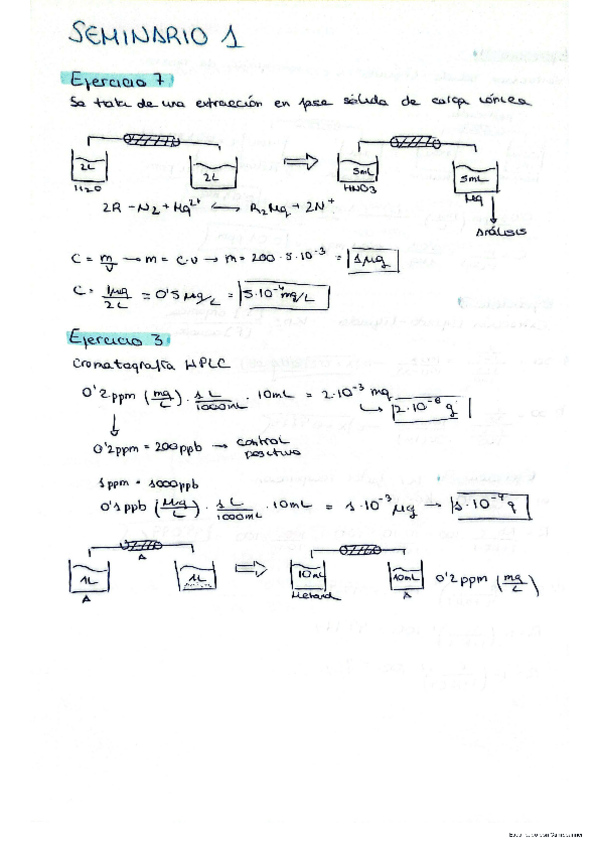 SEMINARIO 1
Ejercicio 7
Se trata de una extracción en fase sólida de carga iónica
2L 2L ⟹ 5mL 5mL
H2O HNO3 Mg
2R-N2 + Mg²⁺ ⟷ R2Mg + 2N⁺
Análisis
C = m/V → m = C·V → m = 200 · 5·10⁻³ = 1 µg
C = 1µg/2L = 0'5 µg/L = 5·10⁻⁴ mg/L
Ejercicio 3
Cromatografía HPLC
0'2 ppm (mg/L) · 1L/1000mL · 10mL = 2·10⁻³ mg
↳ 2·10⁻⁶ g
0'2 ppm = 200 ppb → control positivo
1 ppm = 1000 ppb
0'1 ppb (µg/L) · 1L/1000mL · 10mL = 1·10⁻³ µg → 1·10⁻⁹ g
A
1L 1L ⟹ 10mL 10mL 0'2 ppm (mg/L)
A Metanol A